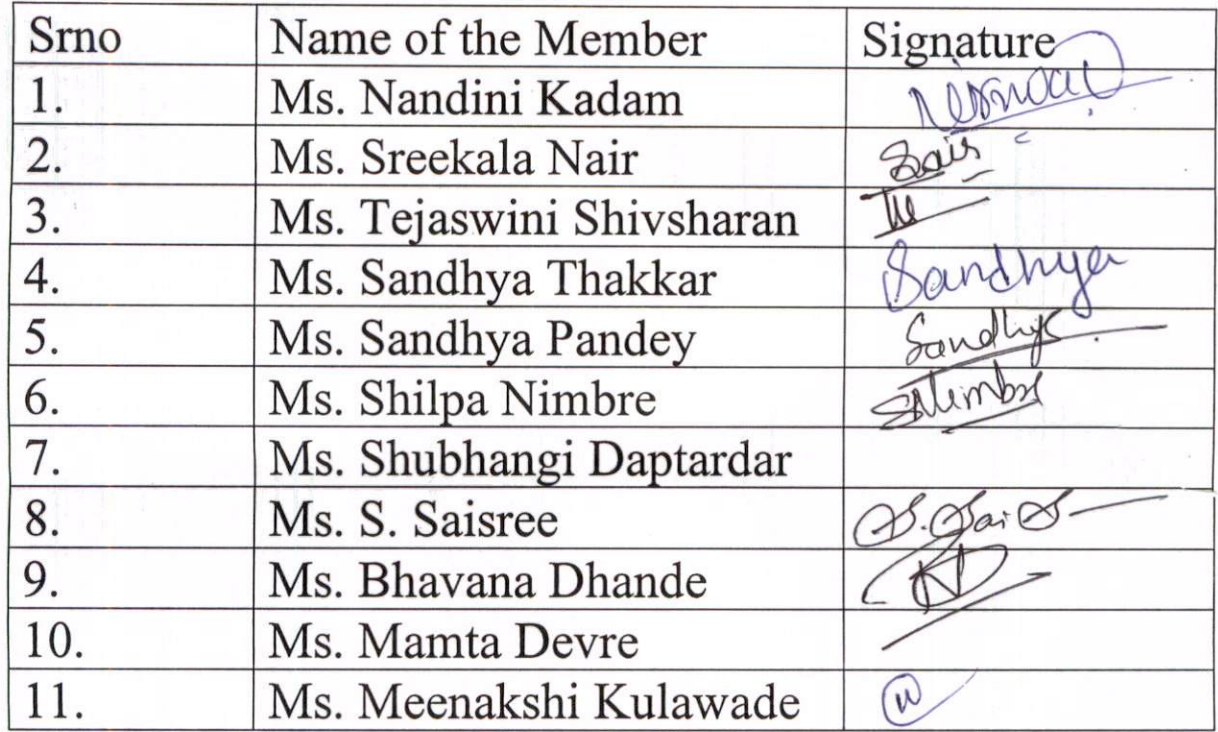 Srno Name of the Member Signature
1. Ms. Nandini Kadam
2. Ms. Sreekala Nair
3. Ms. Tejaswini Shivsharan
4. Ms. Sandhya Thakkar Sandhya
5. Ms. Sandhya Pandey Sandhya
6. Ms. Shilpa Nimbre SNimbre
7. Ms. Shubhangi Daptardar
8. Ms. S. Saisree S. Sai S
9. Ms. Bhavana Dhande
10. Ms. Mamta Devre
11. Ms. Meenakshi Kulawade